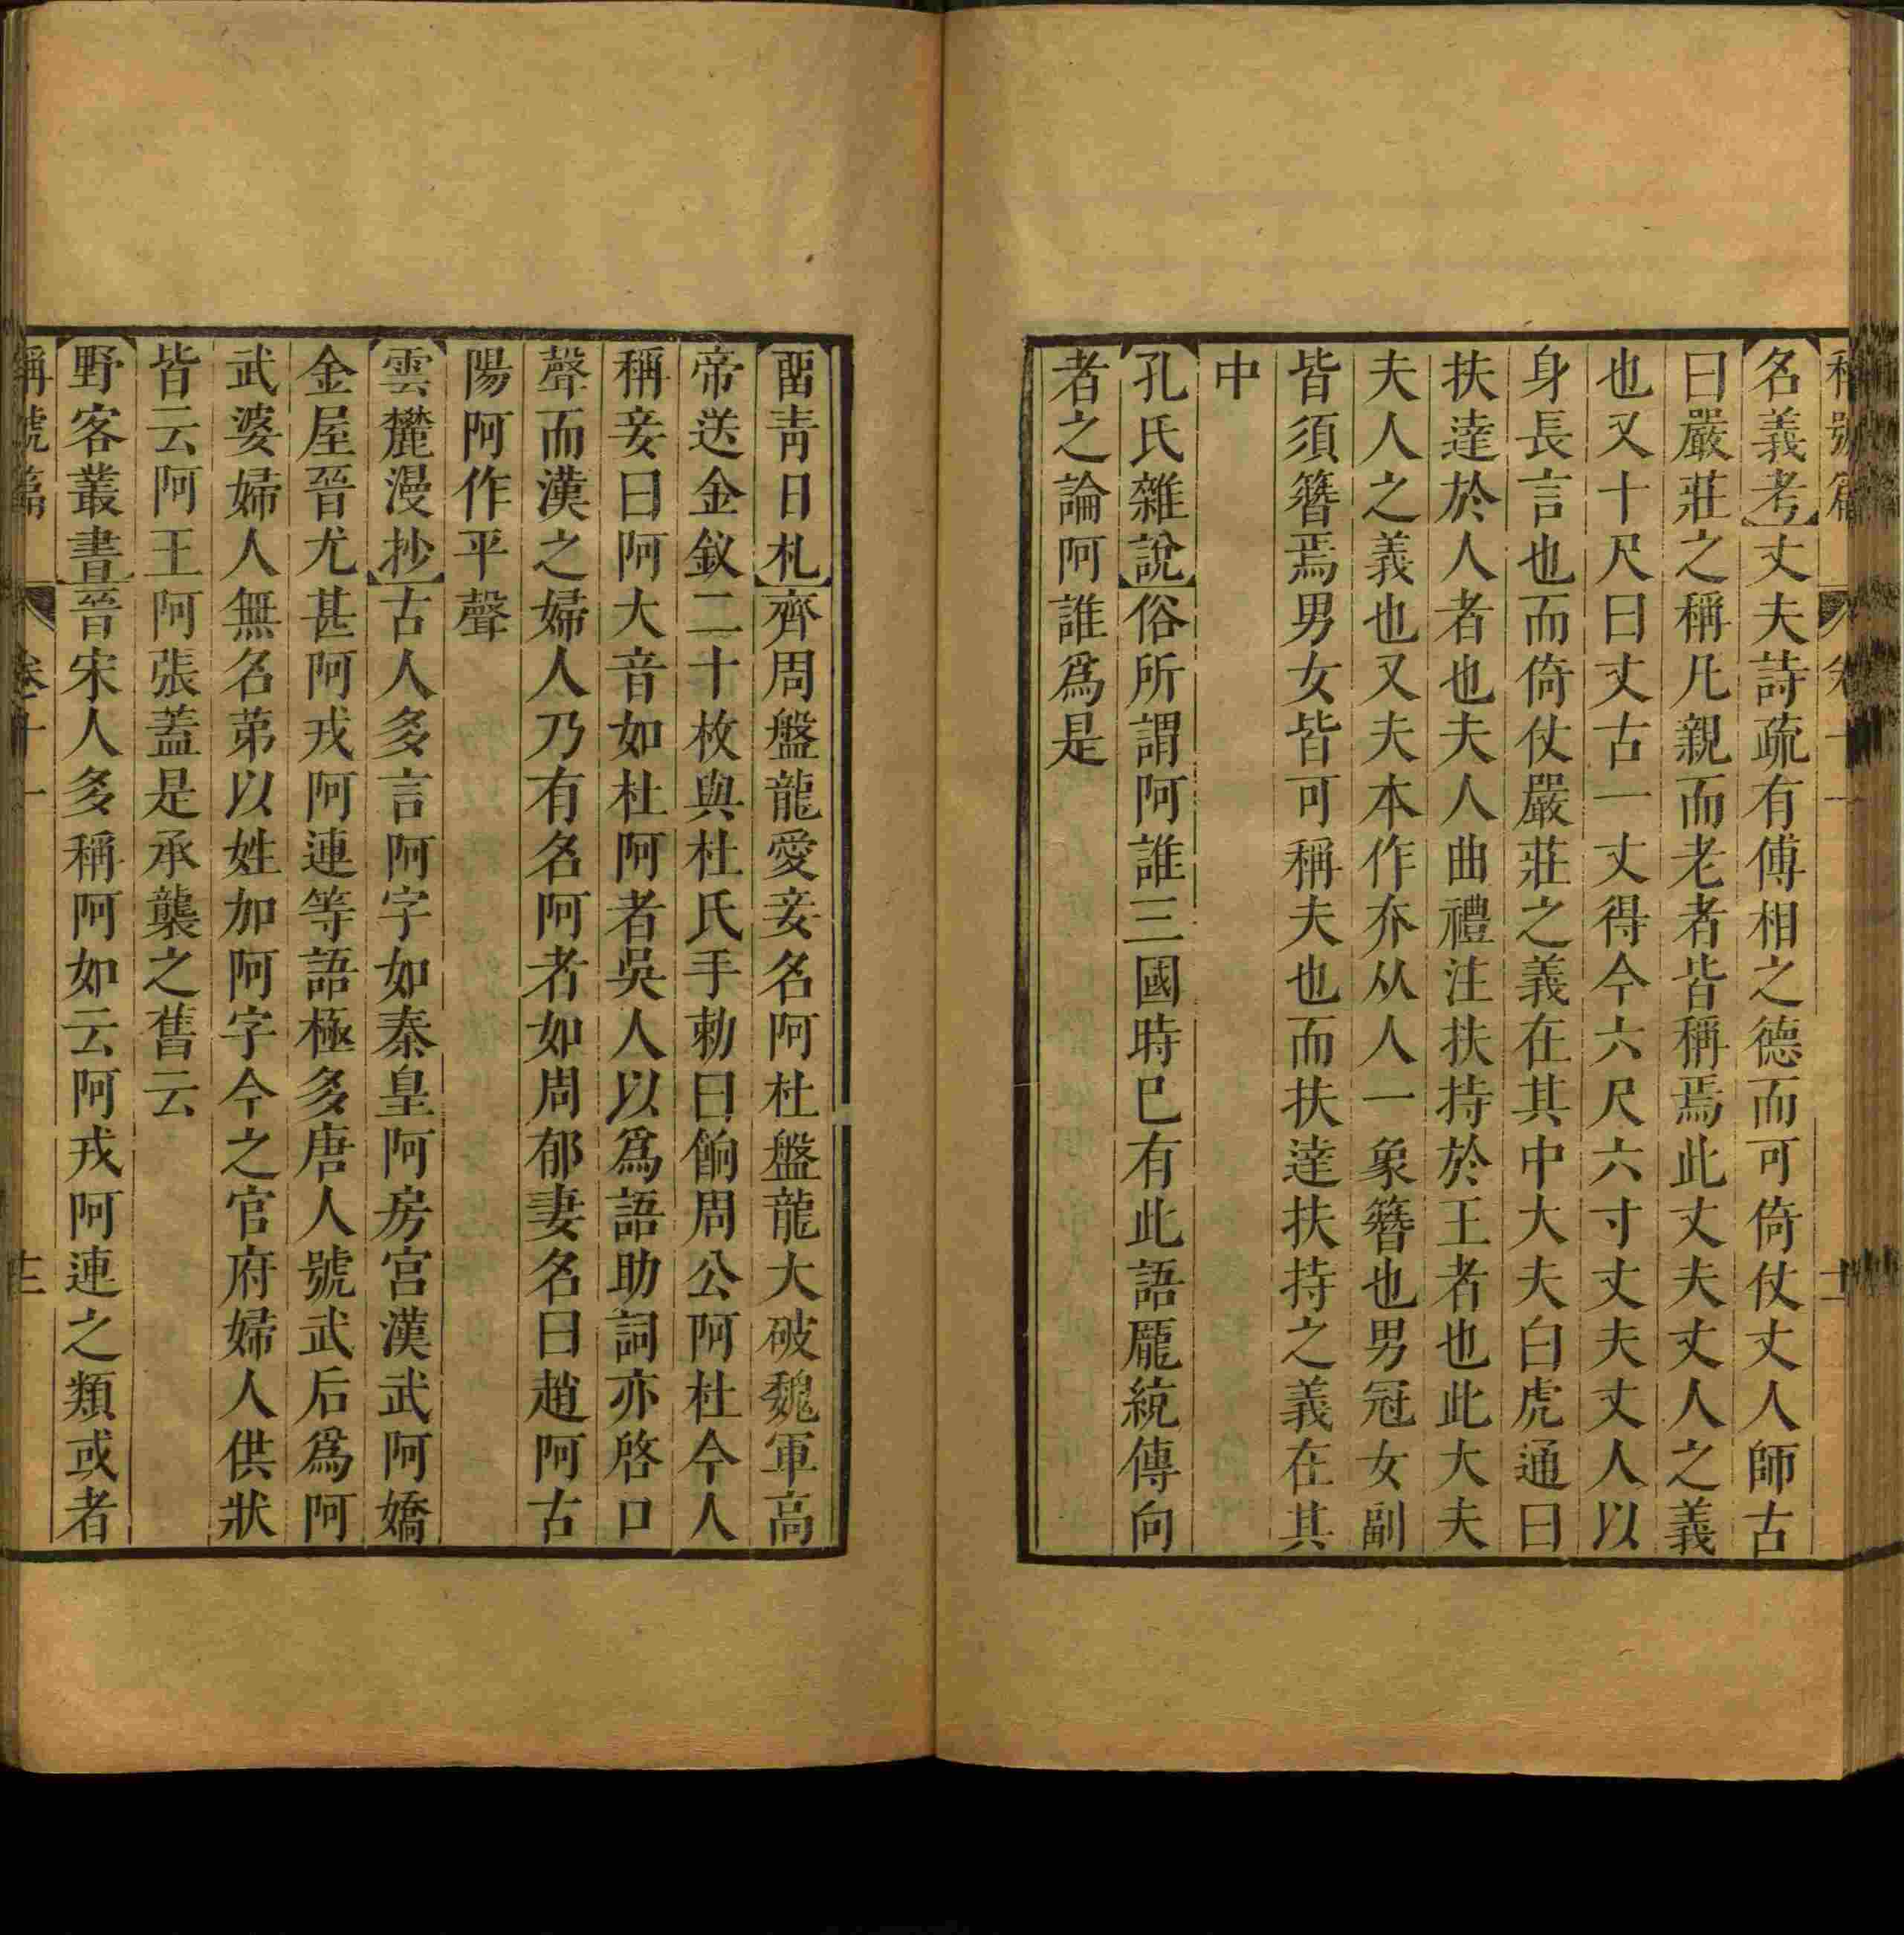 名義考丈夫詩疏有傅相之德而可倚仗丈人師古
曰嚴莊之稱凡親而老者皆稱焉此丈夫丈人之義
也又十尺曰丈古一丈得今六尺六寸丈夫丈人以
身長言也而倚仗嚴莊之義在其中大夫白虎通曰
扶達於人者也夫人曲禮注扶持於王者也此大夫
夫人之義也又夫本作夰从人一象簪也男冠女副
皆須簪焉男女皆可稱夫也而扶達扶持之義在其
中
孔氏雜說俗所謂阿誰三國時巳有此語龎統傳向
者之論阿誰爲是
畱青日札齊周盤龍愛妾名阿杜盤龍大破魏軍高
帝送金釵二十枚與杜氏手勅曰餉周公阿杜今人
稱妾曰阿大音如杜阿者吳人以爲語助詞亦啓口
聲而漢之婦人乃有名阿者如周郁妻名曰趙阿古
陽阿作平聲
雲麓漫抄古人多言阿字如秦皇阿房宫漢武阿嬌
金屋晉尤甚阿戎阿連等語極多唐人號武后爲阿
武婆婦人無名苐以姓加阿字今之官府婦人供狀
皆云阿王阿張蓋是承襲之舊云
野客叢書晉宋人多稱阿如云阿戎阿連之類或者
稱號篇 卷十一 十三